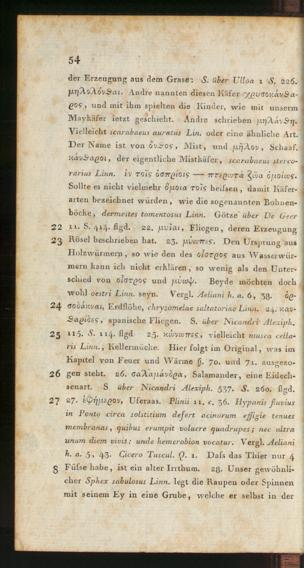 54
der Erzeugung aus dem Grase: S. über Ulloa 1 S. 226.
μηλολόνθαι. Andre nannten diesen Käfer χρυσοκάνθα-
ρος, und mit ihm spielten die Kinder, wie mit unserm
Maykäfer ietzt geschieht. Andre schrieben μηλάνθη.
Vielleicht scarabaeus auratus Lin. oder eine ähnliche Art.
Der Name ist von ὄνθος, Mist, und μῆλον, Schaaf.
κάνθαροι, der eigentliche Mistkäfer, scarabaeus sterco-
rarius Linn. ἐν τοῖς ὀσπρίοις — πτερωτὰ ζῶα ὁμοίως.
Sollte es nicht vielmehr ὅμοια τοῖς heifsen, damit Käfer-
arten bezeichnet würden, wie die sogenannten Bohnen-
böcke, dermestes tomentosus Linn. Götze über De Geer
22 11. S. 414. flgd. 22. μυῖαι, Fliegen, deren Erzeugung
23 Rösel beschrieben hat. 23. μύωπες. Den Ursprung aus
Holzwürmern, so wie den des οἶστρος aus Wasserwür-
mern kann ich nicht erklären, so wenig als den Unter-
schied von οἶστρος und μύωψ. Beyde möchten doch
wohl oestri Linn. seyn. Vergl. Aeliani h. a. 6, 38. ὀρ-
24 σοδάκναι, Erdflöhe, chrysomelae saltatoriae Linn. 24. καν-
θαρίδες, spanische Fliegen. S. über Nicandri Alexiph.
25 115. S. 114. flgd 25. κώνωπες, vielleicht musca cella-
ris Linn., Kellermücke. Hier folgt im Original, was im
Kapitel von Feuer und Wärme §. 70. und 71. ausgezo-
26 gen steht. 26. σαλαμάνδρα, Salamander, eine Eidech-
senart. S über Nicandri Alexiph. 537. S. 260. flgd.
27 27. ἐφήμερον, Uferaas. Plinii 11, c. 36. Hypanis fluvius
in Ponto circa solstitium defert acinorum effigie tenues
membranas, quibus erumpit volucre quadrupes; nec ultra
unam diem vivit: unde hemerobion vocatur. Vergl. Aeliani
h. a. 5, 43. Cicero Tuscul. Q. 1. Dafs das Thier nur 4
8 Füfse habe, ist ein alter Irrthum. 28. Unser gewöhnli-
cher Sphex sabulosus Linn. legt die Raupen oder Spinnen
mit seinem Ey in eine Grube, welche er selbst in der